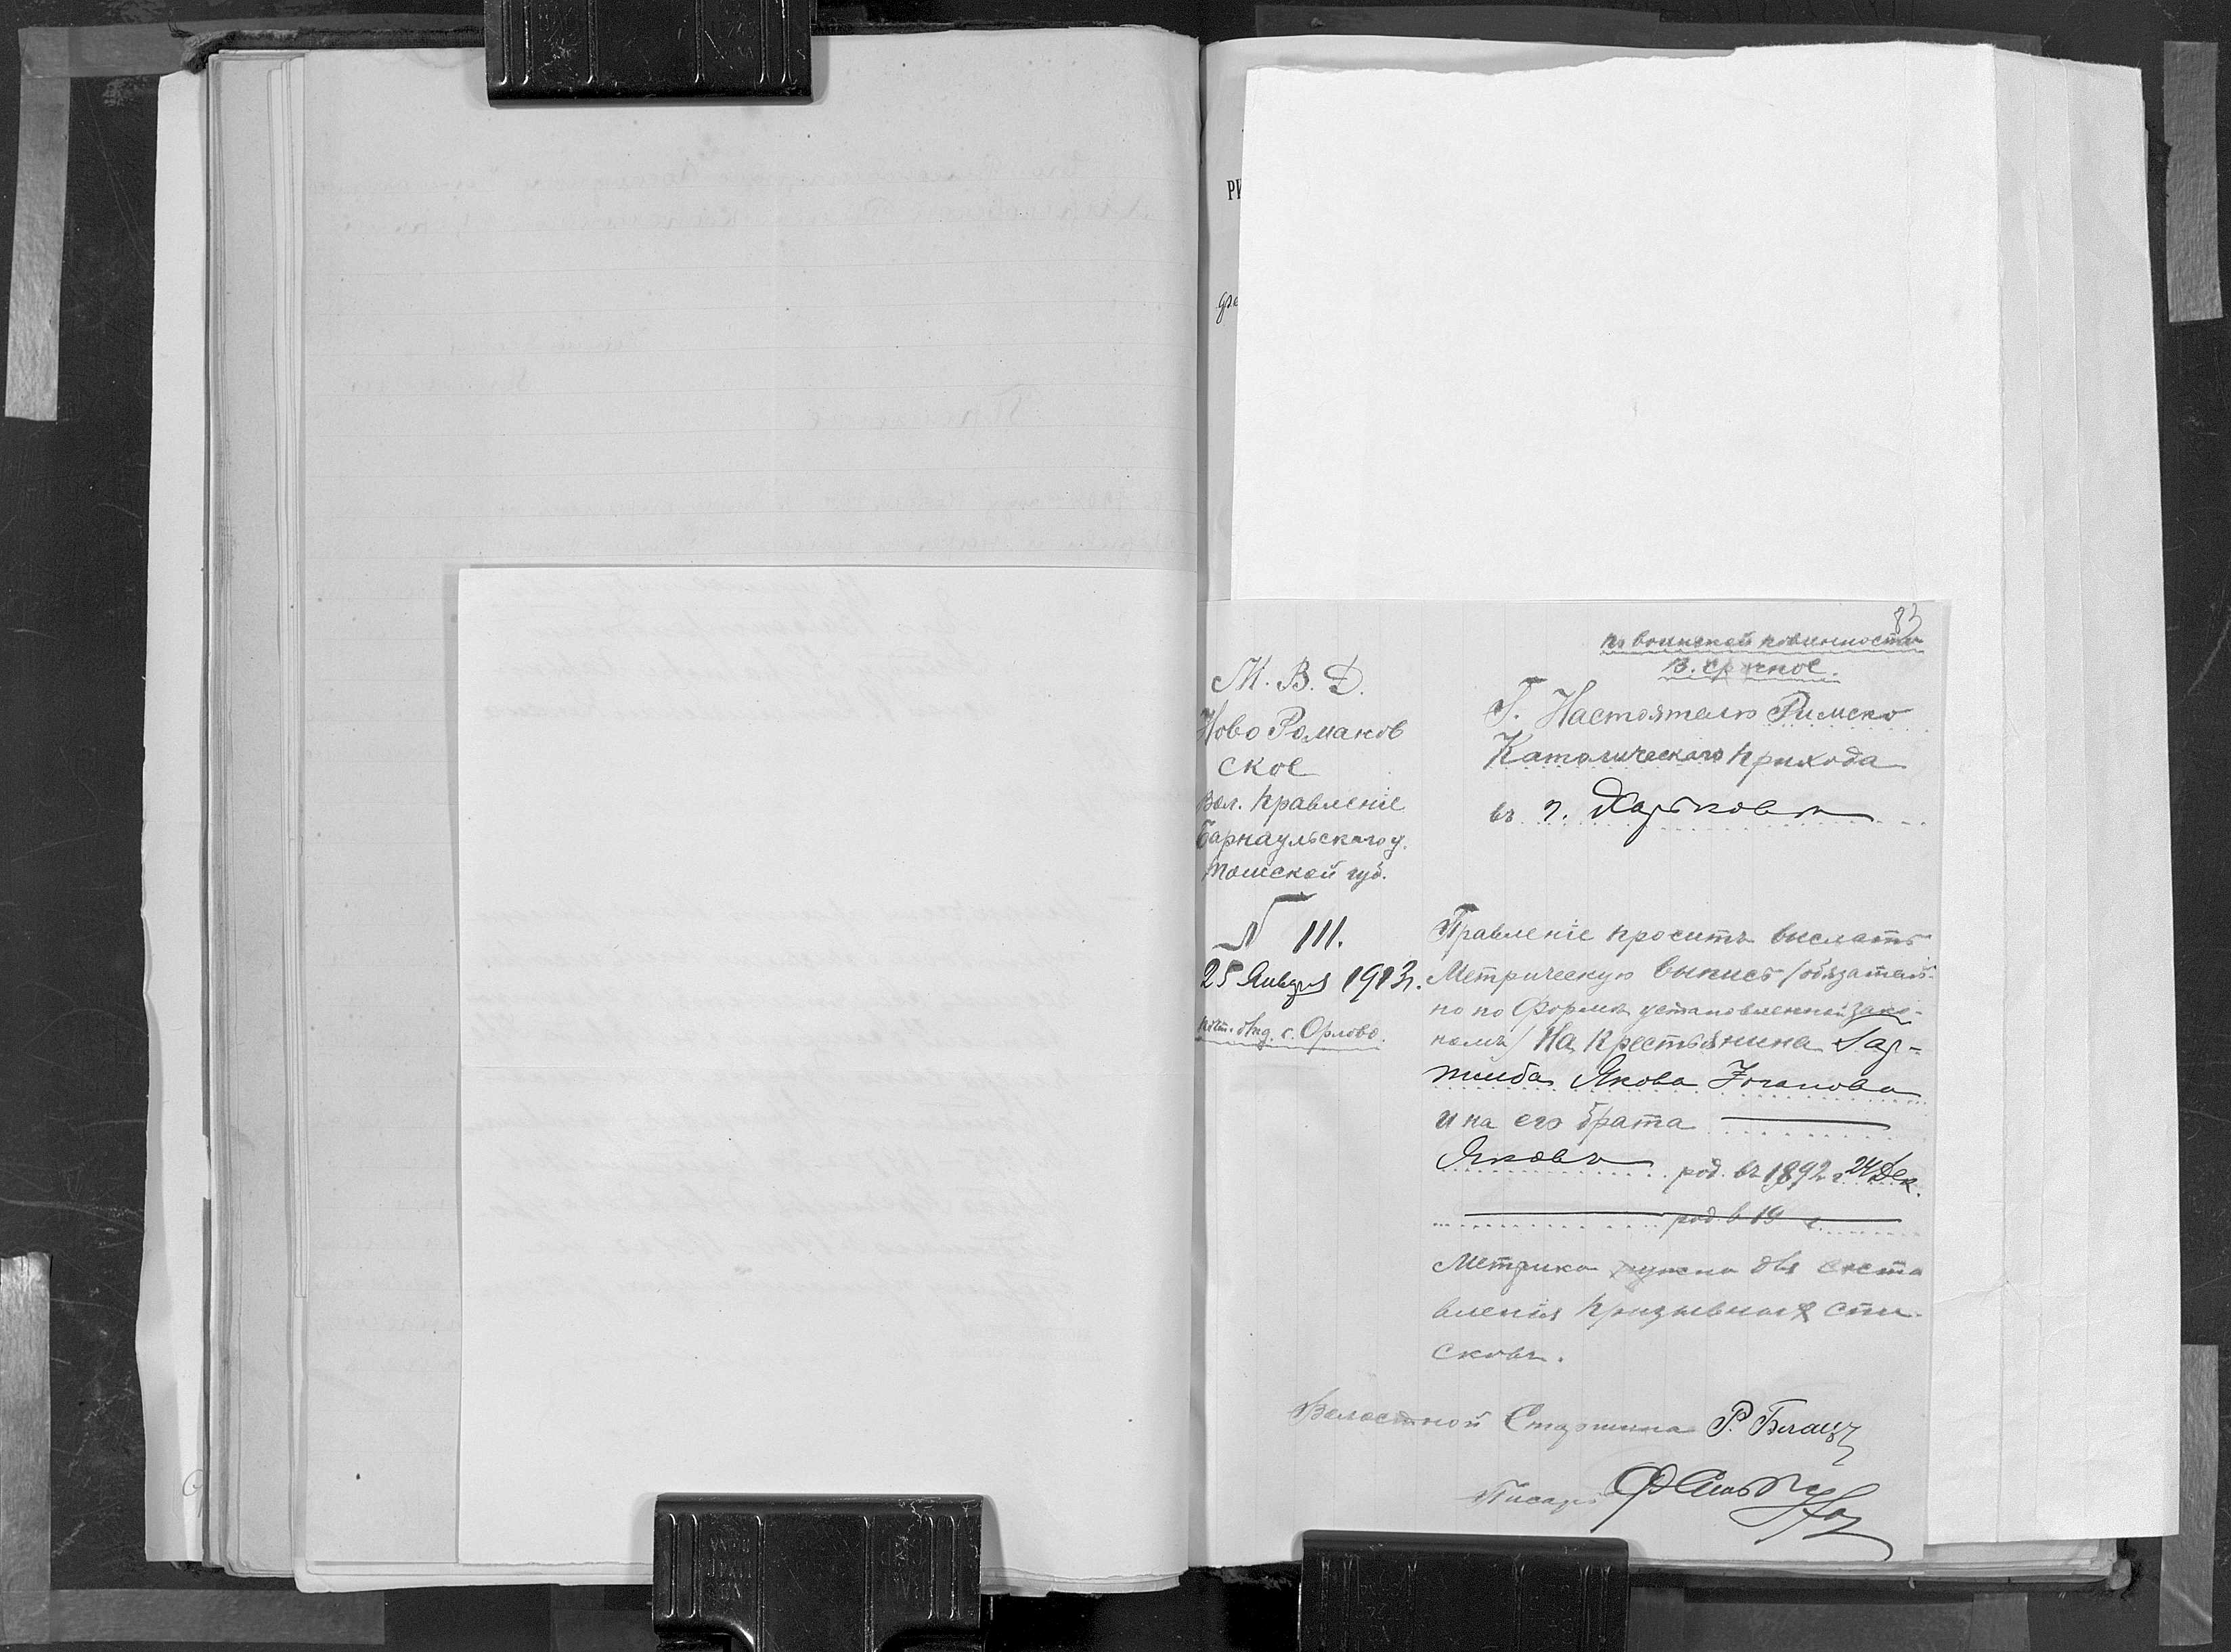 83
по воинской повинности
В. срочное.
М. В. Д.
Ново Романов
ское
Вол. Правленіе
Барнаульскаго у.
Томской губ.
№ 111.
25 Января 1913 г.
почт. отд. с. Орлово.
Г. Настоятелю Римско
Католическаго прихода
въ г. Харьковѣ
Правленіе проситъ выслать
Метрическую выпись /обязатель-
но по формѣ установленной зако-
номъ/ На крестьянина Гар-
Якова Іоганова
и на его брата
Яковъ род. въ 1892 г. 24 Дек.
род. в 19 г.
Метрика нужна для соста
вленія призывныхъ спи-
сковъ.
Волостной Старшина Р.
Писарь
РИ